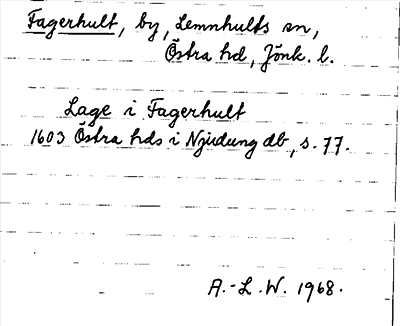 Fagerhult, by, Lemnhults sn,
Östra hd, Jönk. l.
Lage i Fagerhult
1603 Östra hds i Njudung db, s. 77.
A.-L.W. 1968.